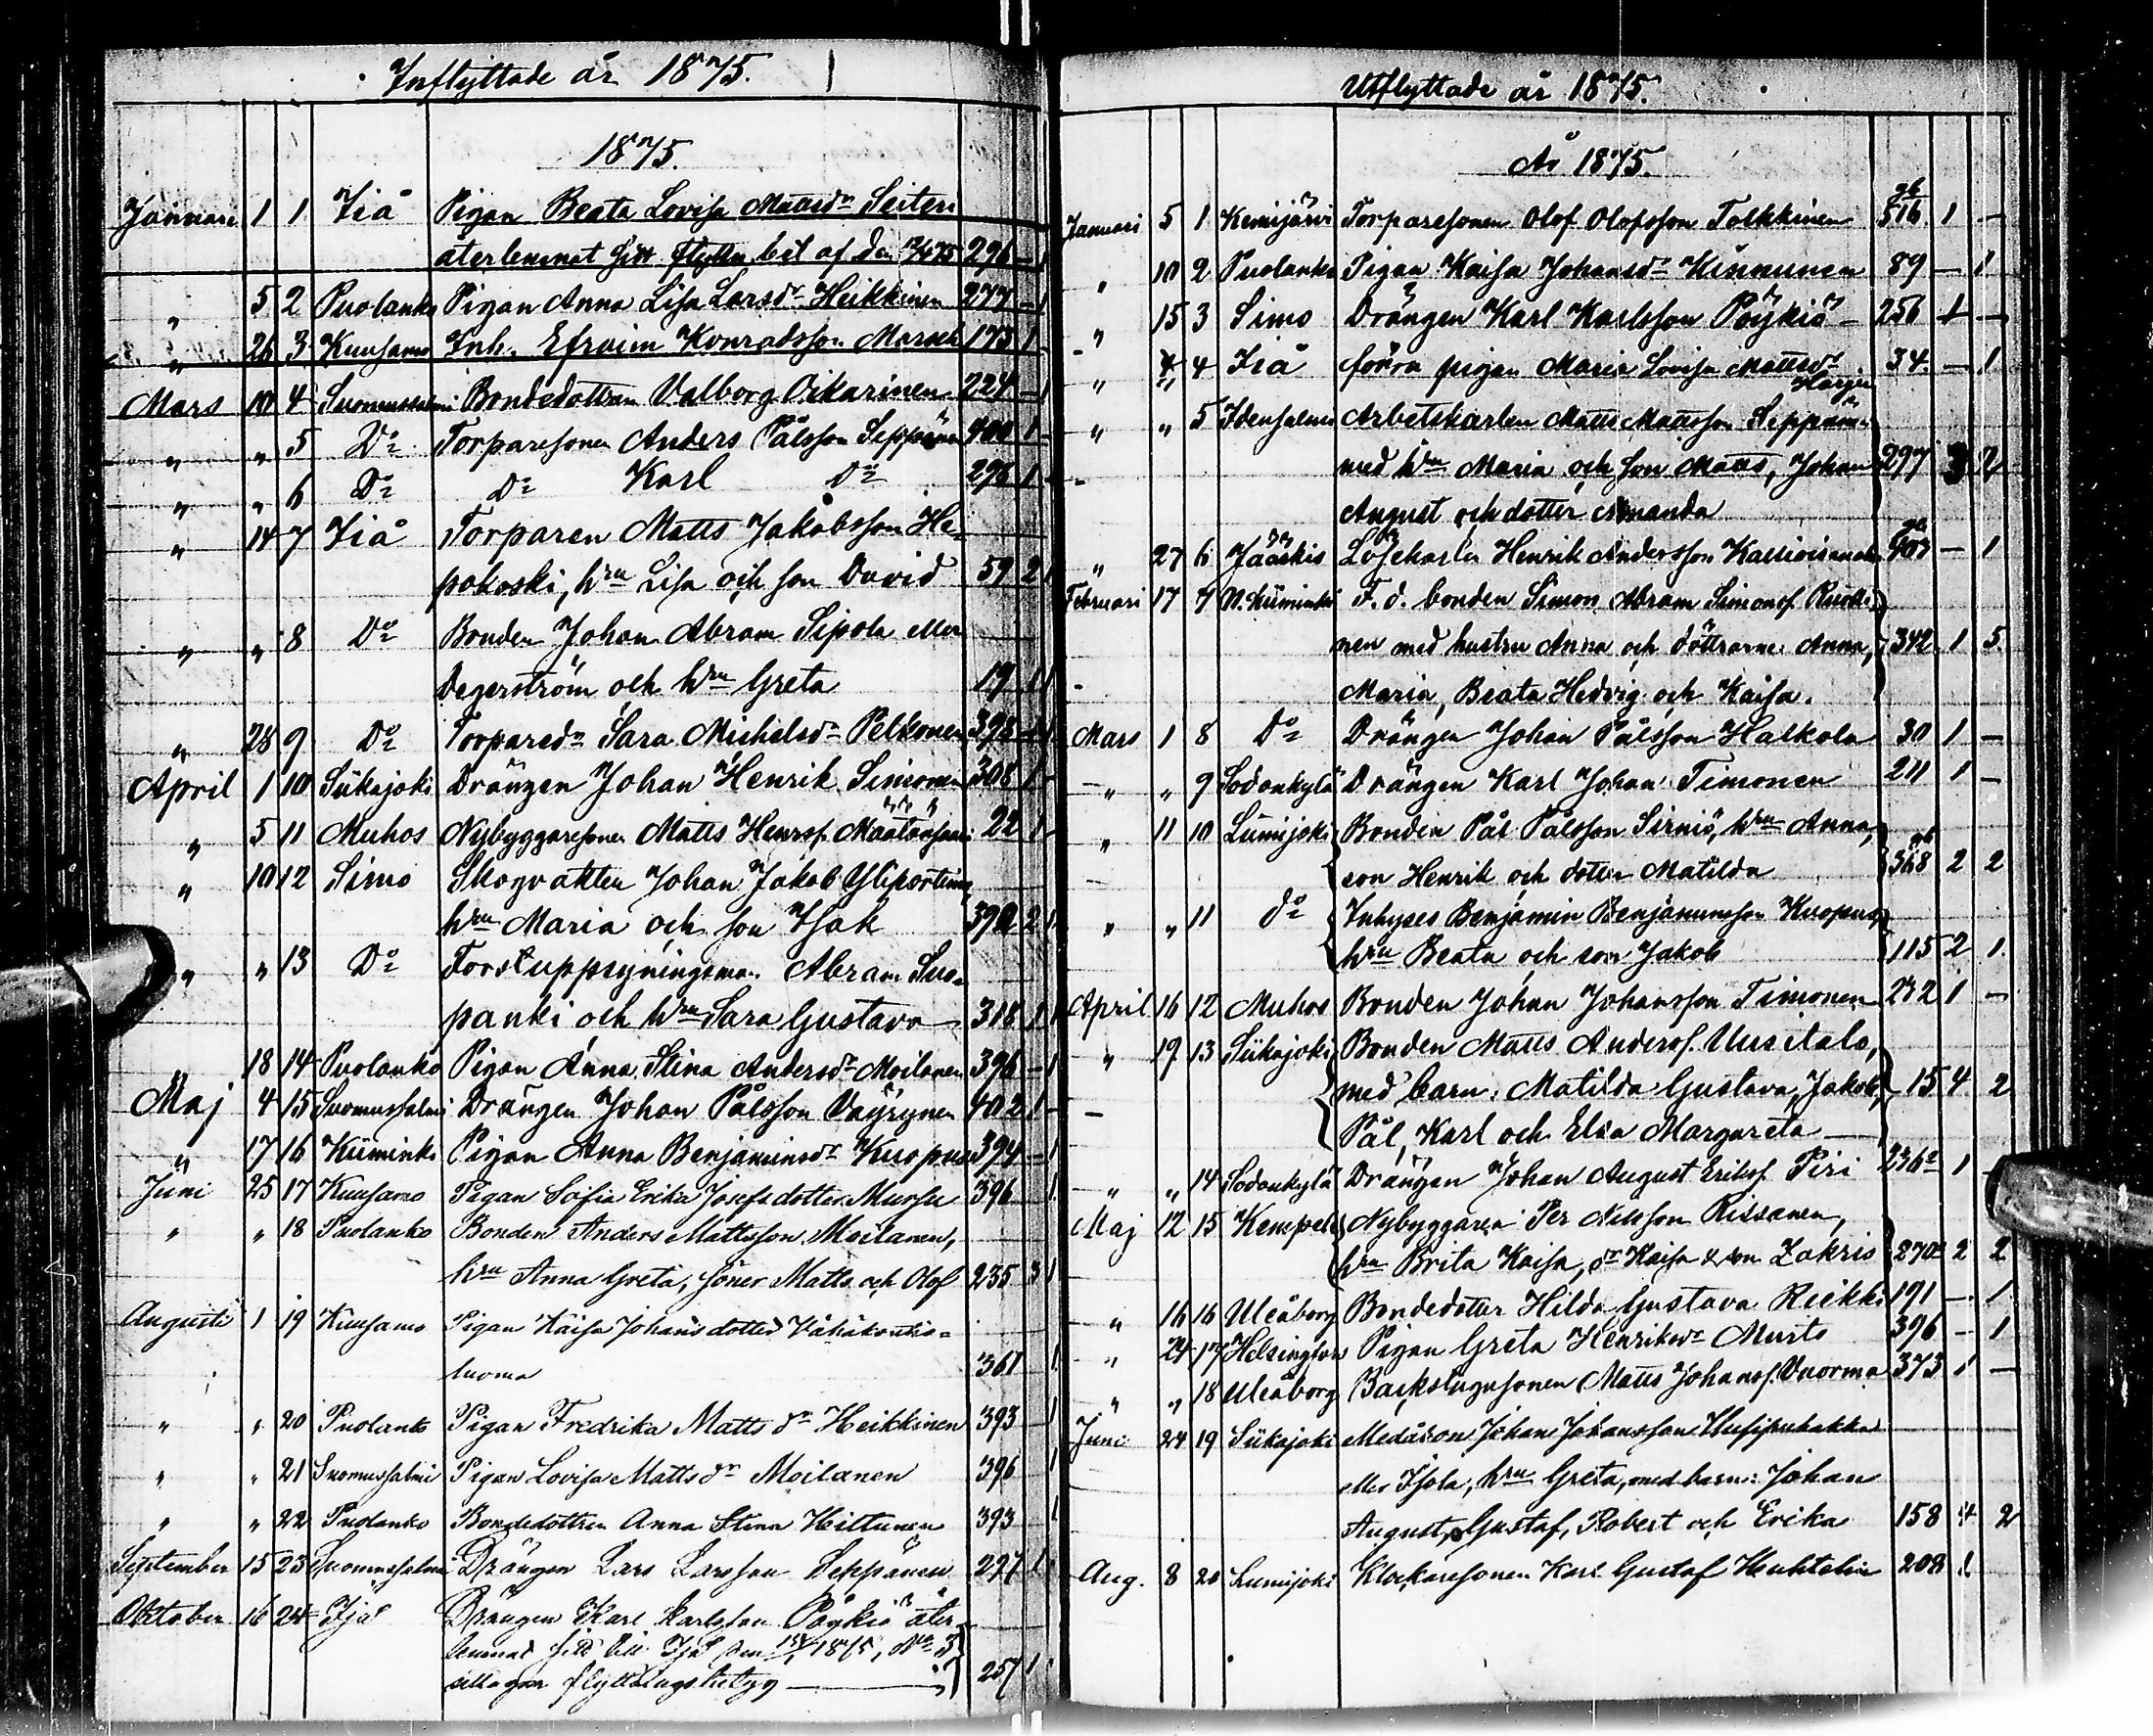 Inflyttade år 1875.
1875.
Januari 1 1 Iiå Pigan Beata Lovisa Mattsdr Seiteri
återlemnat sitt flyttn. bet. af den 12/4 75 296 - 1
" 5 2 Puolanko Pigan Anna Lisa Larsdr Heikkinen 277 - 1
" 26 3 Kuusamo Inh. Efraim Konradsson 173 1 -
Mars 10 4 Suomussalmi Bondedottren Valborg Oikarinen 224 - 1
" " 5 Do Torparesonen Anders Pålsson Seppänen 400 1 -
" " 6 Do Do Karl Do 296 1 -
" 14 7 Iiå Torparen Matts Jakobsson He-
pokoski, hru Lisa och son David 59 2 1
" " 8 Do Bonden Johan Abram Sipola eller
Degerström och hru Greta 19 1 1
" 28 9 Do Torparedr Sara Michelsdr Pelkonen 398 - 1
April 1 10 Siikajoki Drängen Johan Henrik Simonen 308 1 -
" 5 11 Muhos Nybyggaresonen Matts Henrsf. 22 1 -
" 10 12 Simo Skogvakten Johan Jakob Yliportimo,
hru Maria och son Isak 390 2 1
" " 13 Do Forstuppsyningsman Abram Suo-
panki och hru Sara Gustava 318 1 1
18 14 Puolanko Pigan Anna Stina Andersdr Moilanen 396 - 1
Maj 4 15 Suomussalmi Drängen Johan Pålsson Väyrynen 402 1 -
" 17 16 Kiiminki Pigan Anna Benjaminsdr Kuopus 394 - 1
Juni 25 17 Kuusamo Pigan Sofia Erika Josefsdotter Mursu 396 1
" " 18 Puolanko Bonden Anders Mattsson Moilanen,
hru Anna Greta, söner Matts och Olof 235 3 1
Augusti 1 19 Kuusamo Pigan Kaisa Johansdotter
luoma 361 1
" " 20 Puolanko Pigan Fredrika Mattsdr Heikkinen 393 1
" " 21 Suomussalmi Pigan Lovisa Mattsdr Moilanen 396 1
" " 22 Puolanko Bondedottren Anna Stina Hiltunen 393 1
September 15 23 Suomussalmi Drängen Lars Larsson Seppänen 297 1
Oktober 16 24 Ijo Drängen Karl Karlsson Pöykiö åter-
lemnat sitt till Ijo den 15/1 1875, No 3
uttagna flyttningsbetyg 257 1
Utflyttade år 1875.
År 1875.
Januari 5 1 Kemijärvi Torparesonen Olof Olofsson Tolkkinen 516 1 -
" 10 2 Puolanko Pigan Kaisa Johansdr Kinnunen 89 - 1
" 15 3 Simo Drängen Karl Karlsson Pöykiö 256 1 -
" " 4 Iiå förra pigan Maria Lovisa Mattsdr 34 - 1
Harju
" " 5 Idensalmi Arbetskarlen Matts Mattsson Seppän.
med hru Maria och son Matts, Johan 297 3 2
August och dotter Amanda
" 27 6 Jääskis Lösekarlen Henrik Andersson - 1
Februari 17 7 N. Kiiminki F. d. bonden Simon Abram Simonsf. Ruotti-
nen med hustru Anna och döttrarne Anna, 342 1 5
Maria, Beata Hedvig och Kaisa.
Mars 1 8 Do Drängen Johan Pålsson Halkola 30 1 -
" " 9 Sodankylä Drängen Karl Johan Timonen 211 1 -
" 11 10 Lumijoki Bonden Pål Pålsson Sirniö, hru Anna,
son Henrik och dotter Matilda 368 2 2
" " 11 do Inhyses Benjamin Benjaminsson Kuopus,
hru Beata och son Jakob 115 2 1
April 16 12 Muhos Bonden Johan Johansson Timonen 232 1 -
" 19 13 Siikajoki Bonden Matts Andersf. Uusitalo,
med barn: Matilda Gustava, Jakob, 15 4 2
Pål, Karl och Elsa Margareta
" " 14 Sodankylä Drängen Johan August Eriksf. Piri 236 1 -
Maj 12 15 Kempele Nybyggaren Per Nilsson Rissanen,
hru Brita Kaisa, dr Kaisa & son Zakris 270 2 2
" 16 16 Uleåborg Bondedotter Hilda Gustava Riekki 191 - 1
" 24 17 Helsingfors Pigan Greta Henriksdr Murto 396 - 1
" " 18 Uleåborg Backstugusonen Matts Johansf. Vuorma 373 1 -
Juni 24 19 Siikajoki Johan Johansson
eller Isola, hru Greta, med barn: Johan
August, Gustaf, Robert och Erika 158 4 2
Aug. 8 20 Lumijoki Klockaresonen Karl Gustaf Huhtelin 208 1